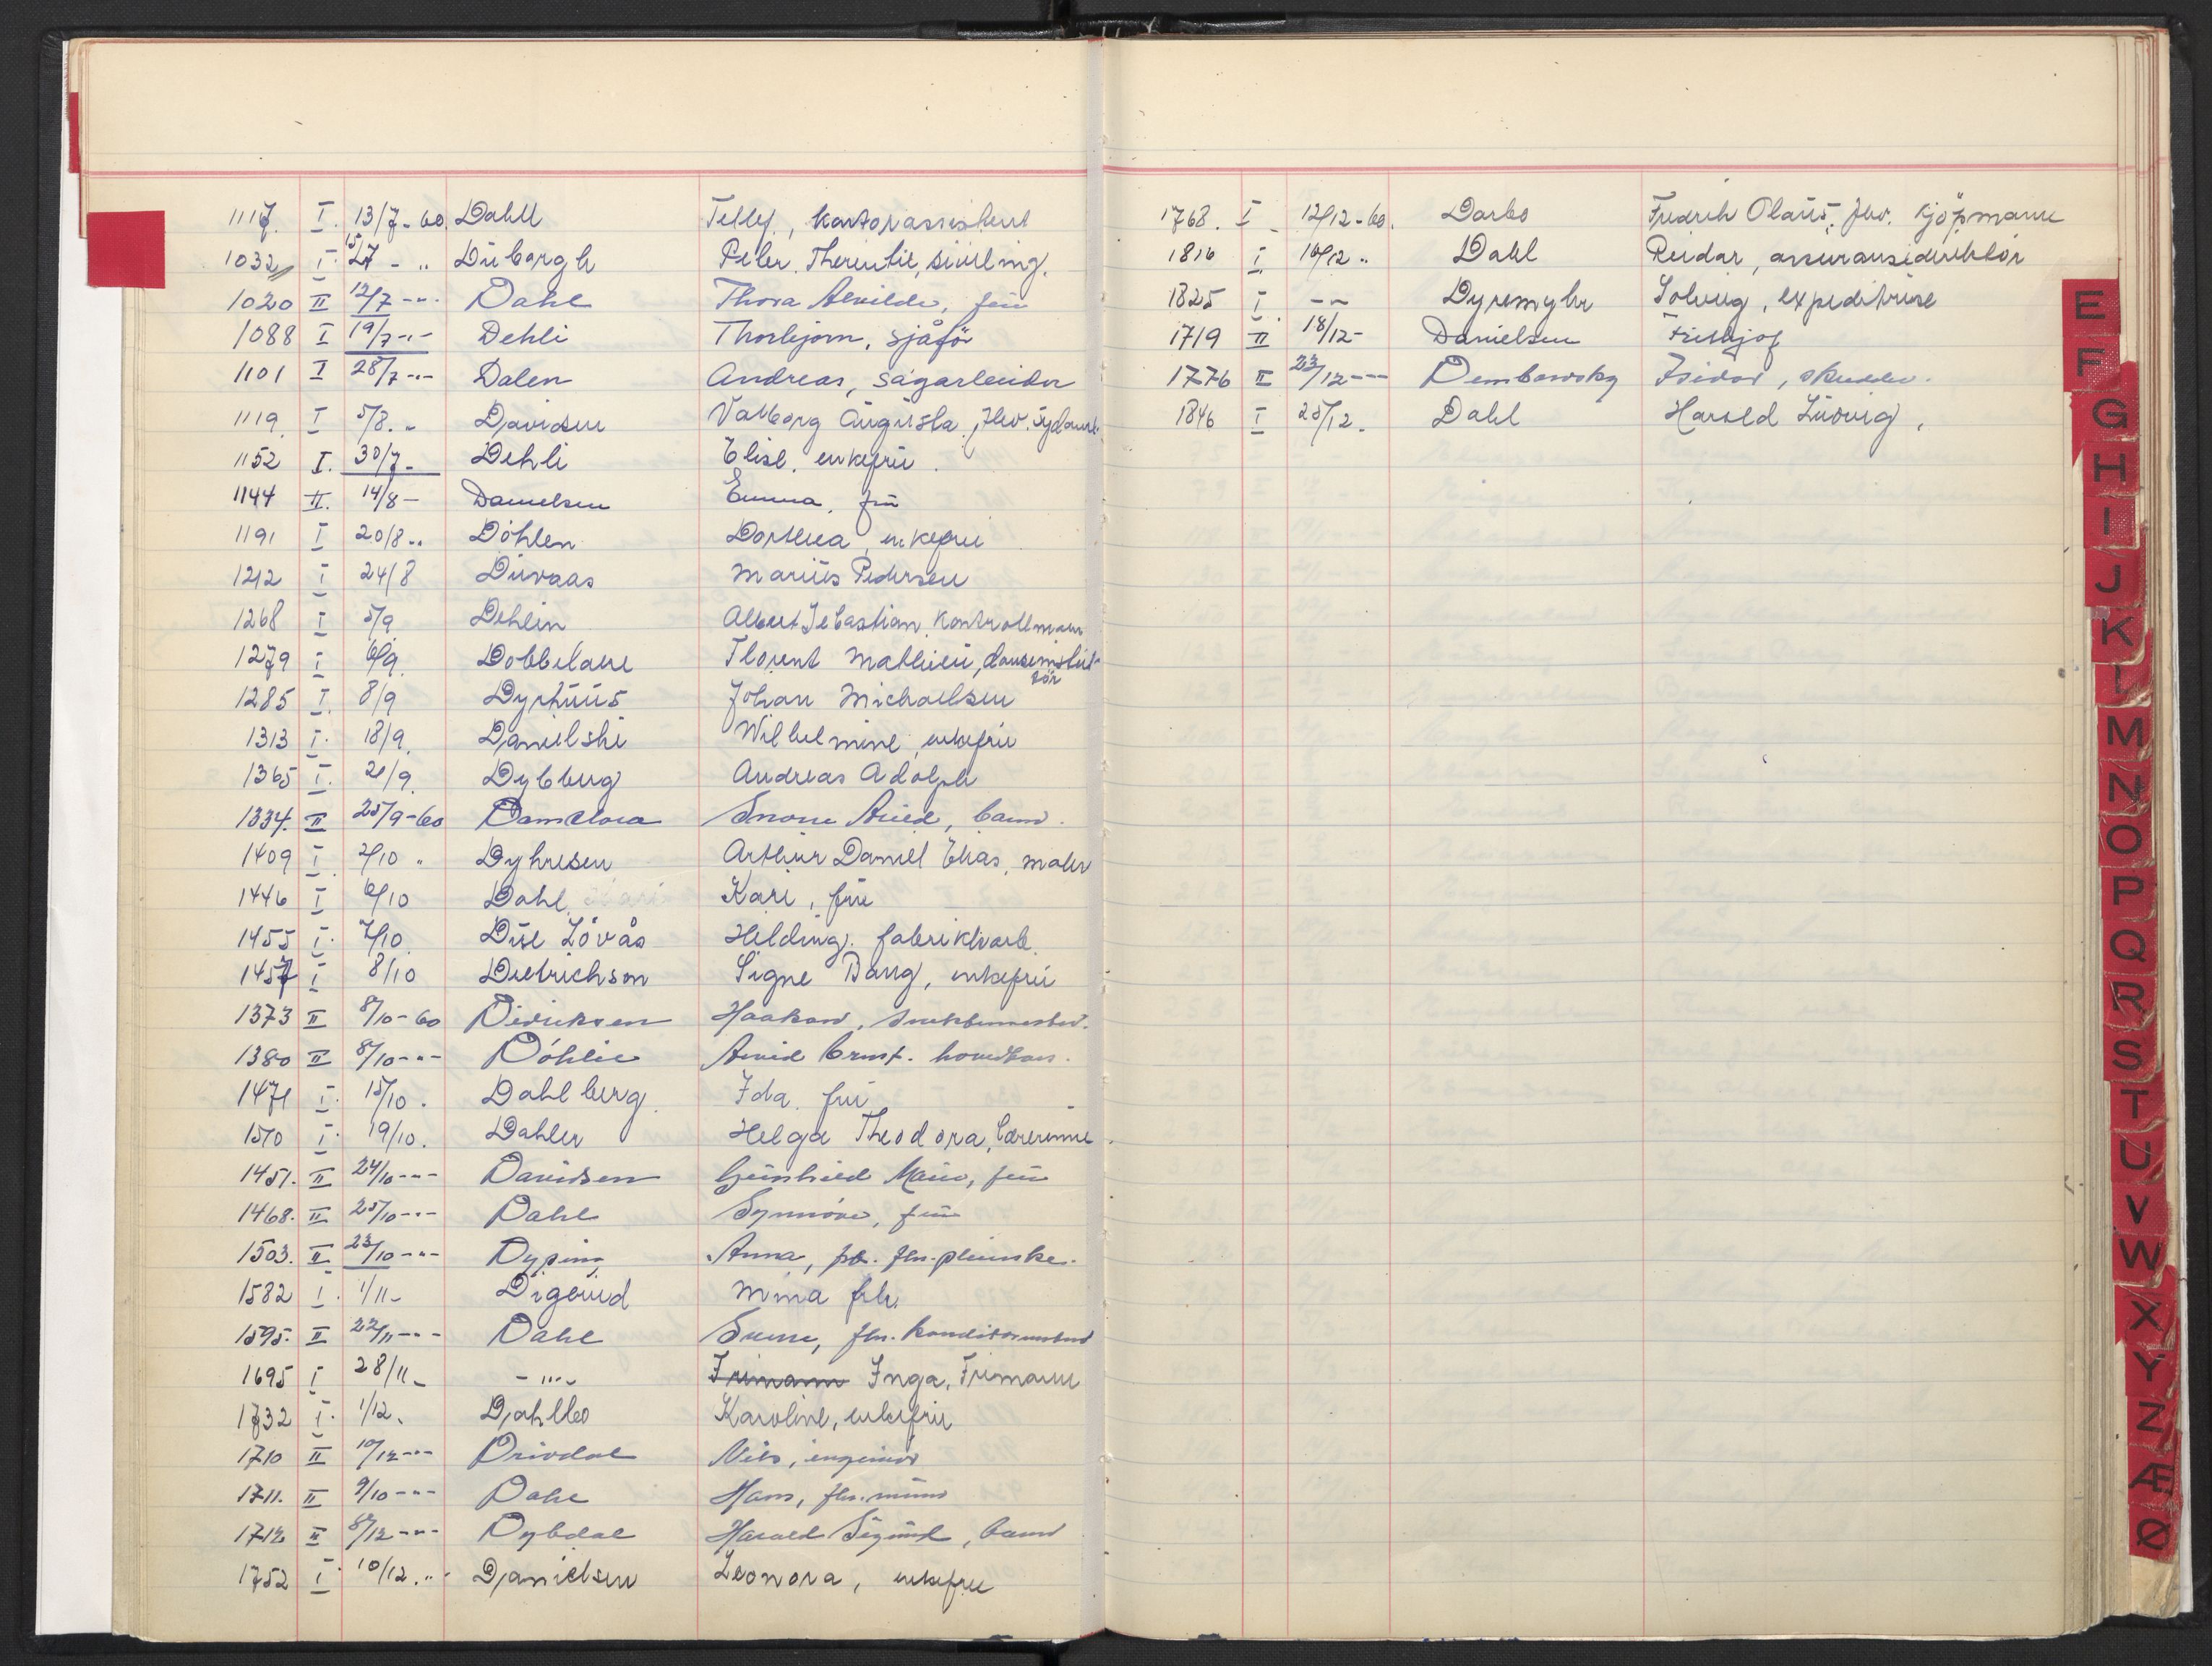 1117. I. 13/7-60. Dahll Tellef., kontorassistent
1032 I. 15/7 - " Düborgh Peter Therentie, siviling.
1020 II 12/7 -"- Dahl Thora Alvilde, frü
1088 I 19/7 -"- Dehli Thorbjørn, sjåför
1101 I 28/7 -"- Dalen Andreas, sagarbeider
1119. I 5/8. " Davidsen Valborg Augüsta, fhv. sydame
1152 I. 30/7- Dehli Elise, enkefrü.
1144 II. 14/8- Danielsen Emma, frü
1191 I 20/8 .. Döhlen Dorthea, enkefrü
1212 I 24/8 Düvaas Mariüs Pedersen
1268 I 5/9 Dehlin Albert Sebastian, kontrollmann
1279 I 6/9. Dobbelaere Florent Mathieü, danseinstrük-
tör
1285 I. 8/9 Dyrhüüs Johan Michaelsen
1313 I. 18/9. Danielski Wilhelmine, enkefrü
1365 I. 21/9. Dybberg Andreas Adolph
1334. II 25/9-60 Snorre Arild, barn.
1409 I. 2/10 " Dyhresen Arthür Daniel Elias, maler
1446 I 6/10 Dahl Kari, frü
1455 I. 7/10. Düe Lövås Helding. fabrikkarb.
1457 I 8/10 Dietrichson Signe Bang, enkefrü
1373 II 8/10-60 Diriksen Haakon,
1380 II 8/10-"- Döhlie Arvid Ernst.
1471 I. 15/10. Dahlberg Ida. frü
1510 I. 19/10. Dahler Helga Theodora, lærerinne.
1451. II 24/10-"- Davidsen Günhild Marie, frü
1468. II 25/10-"- Dahl Synnöve, frü
1503. II 23/10-"- Dyping Anna,
1582 I. 1/11- Digerüd Mina frk.
1595. II 22/11-"- Dahl Sverre, fhv. konditormester
1695 I 28/11- -"- Frimann Inga, Frimann
1732 I. 1/12. Dahlbo Karoline, enkefrü
1710 II 10/12-"- Drivdal Nils, ingeniör
1711. II 9/10-"- Dahl Hans, fhv. mürer
1712 II 8/12-"- Dybdal Harald Sigürd, barn
1752 I. 10/12. "- Danielsen Leonora, enkefrü
1768. I 12/12-60. Darbo Fredrik Olaüs, fhv. kjöpmann
1816 I 16/12 .. Dahl Reidar, assuransedirektör
1825 I. -"- Dyremyhr Solveig, expeditrise
1719 II 18/12- Danielsen Frithjof
1776 II 23/12-"- Dembowsky Isidor, skredder.
1846 I 25/12. Dahl Harald Lüdvig,
E
F
G
H
I
J
K
L
M
N
O
P
Q
R
S
T
U
V
W
X
Y
Z
Æ
Ø